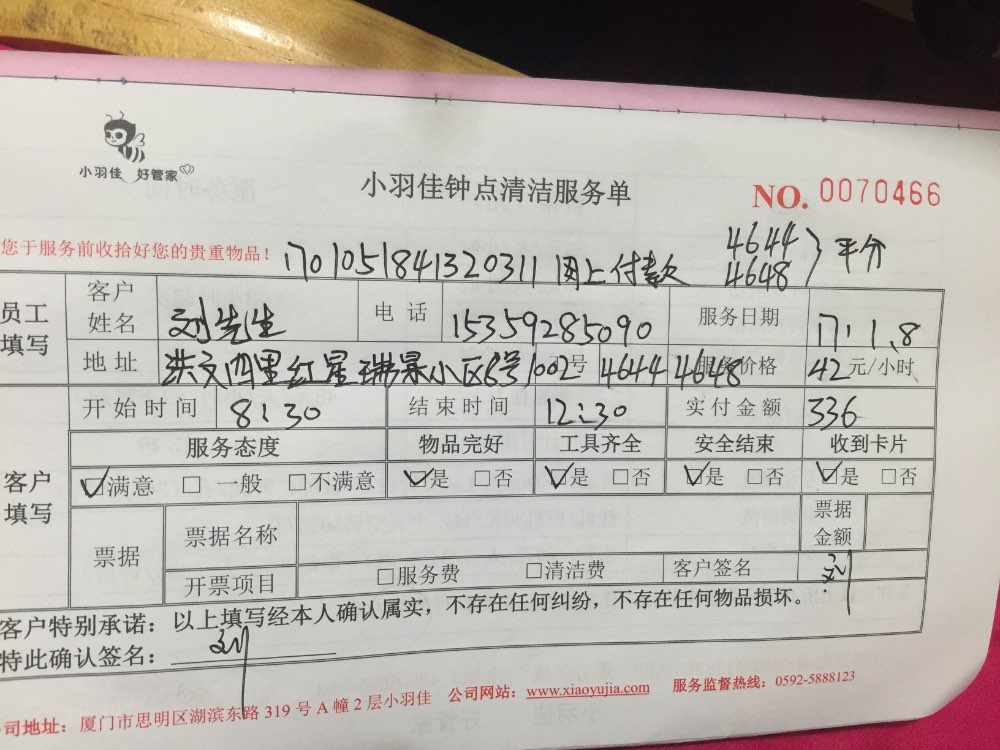 小羽佳 好管家
小羽佳钟点清洁服务单
NO. 0070466
您于服务前收拾好您的贵重物品！
1701051841320311 网上付款 4644 4648 } 平分
员工填写
客户姓名 刘先生 电话 15359285090 服务日期 17.1.8
地址 洪文四里红星瑞景小区6号1002 号 4644 4648 服务价格 42元/小时
开始时间 8:30 结束时间 12:30 实付金额 336
客户填写
服务态度 物品完好 工具齐全 安全结束 收到卡片
☑满意 □一般 □不满意 ☑是 □否 ☑是 □否 ☑是 □否 ☑是 □否
票据 票据名称 票据金额
开票项目 □服务费 □清洁费 客户签名 刘
客户特别承诺：以上填写经本人确认属实，不存在任何纠纷，不存在任何物品损坏。
特此确认签名：刘
司地址：厦门市思明区湖滨东路 319 号 A 幢 2 层小羽佳 公司网站：www.xiaoyujia.com 服务监督热线：0592-5888123